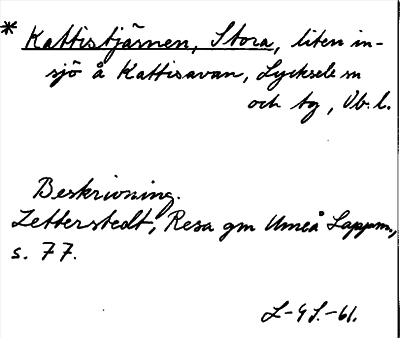 * Kattistjärnen, Stora, liten in-
sjö å Kattisavan, Lycksele sn
och tg, Vb. l.
Beskrivning.
Zetterstedt, Resa gm Umeå Lappm.,
s. 77.